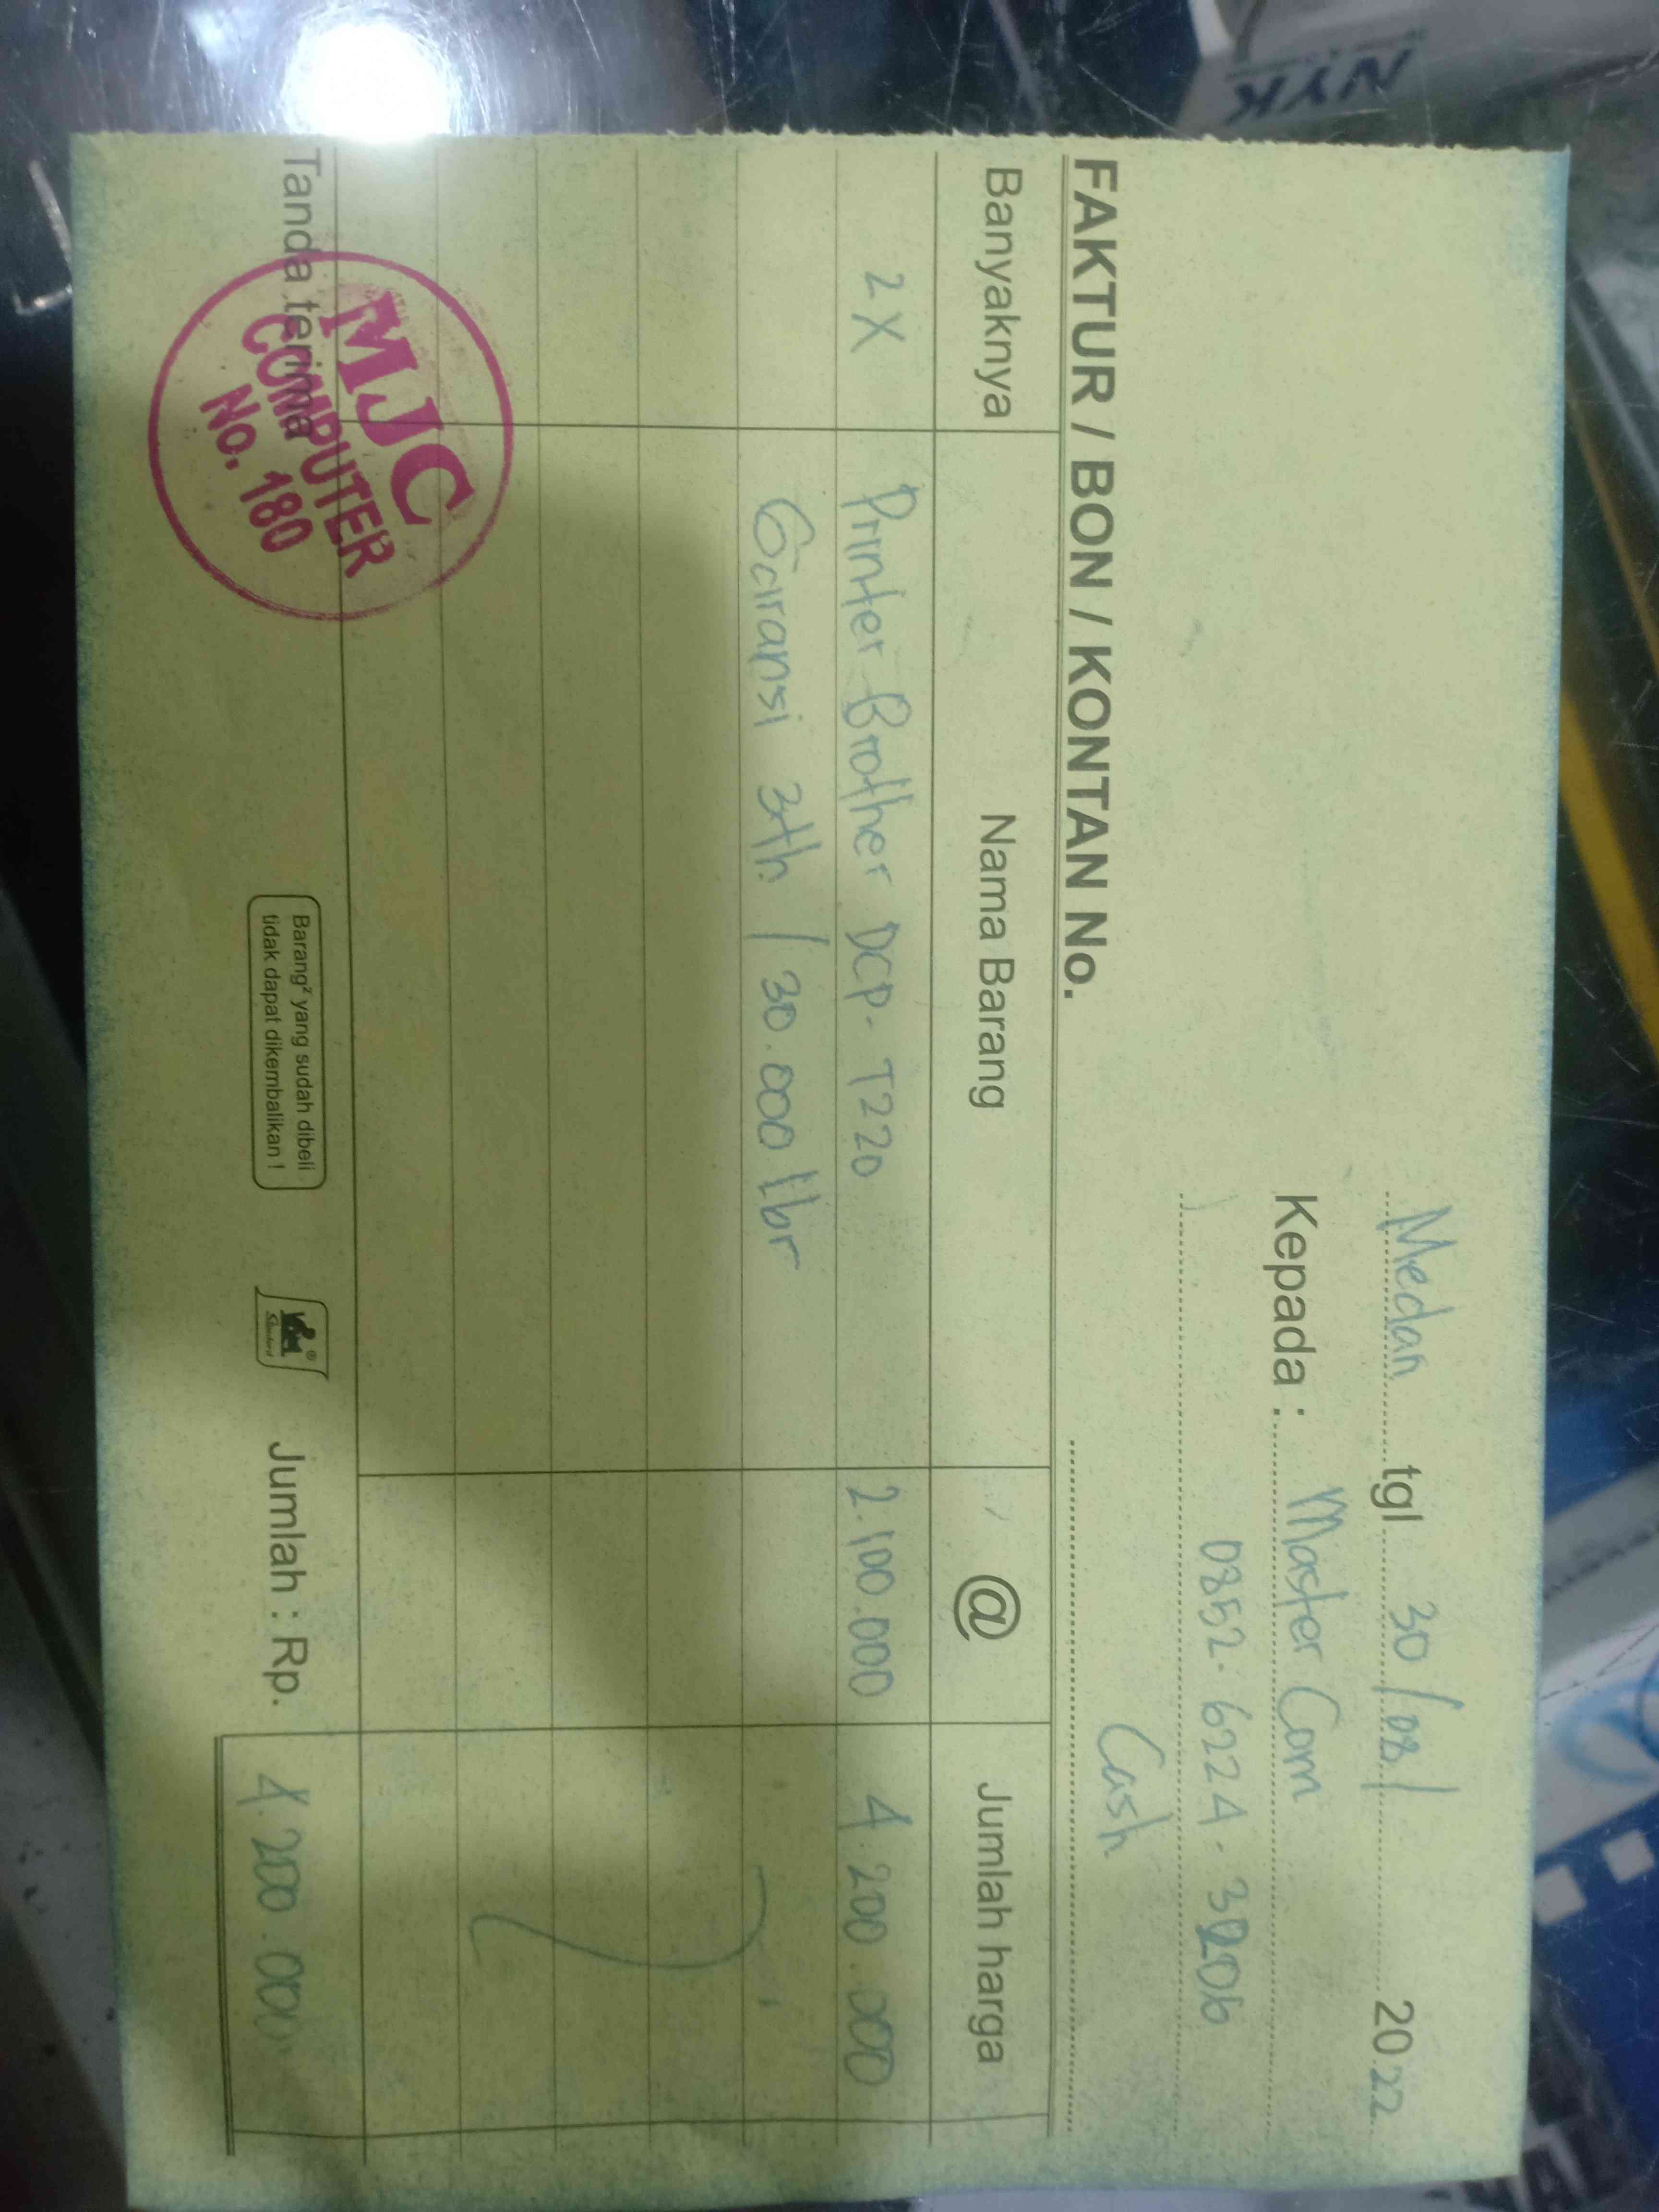 Medan tgl 30/08/ 2022
Kepada : Master Com
0852-6224-3206
Cash
FAKTUR / BON / KONTAN No.
Banyaknya Nama Barang @ Jumlah harga
2 X Printer Brother DCP-T220 2.100.000 4.200.000
Garansi 3th / 30.000 lbr
Tanda terima
MJC
COMPUTER
No. 180
Barang² yang sudah dibeli
tidak dapat dikembalikan !
Standard
Jumlah : Rp. 4.200.000
NYK